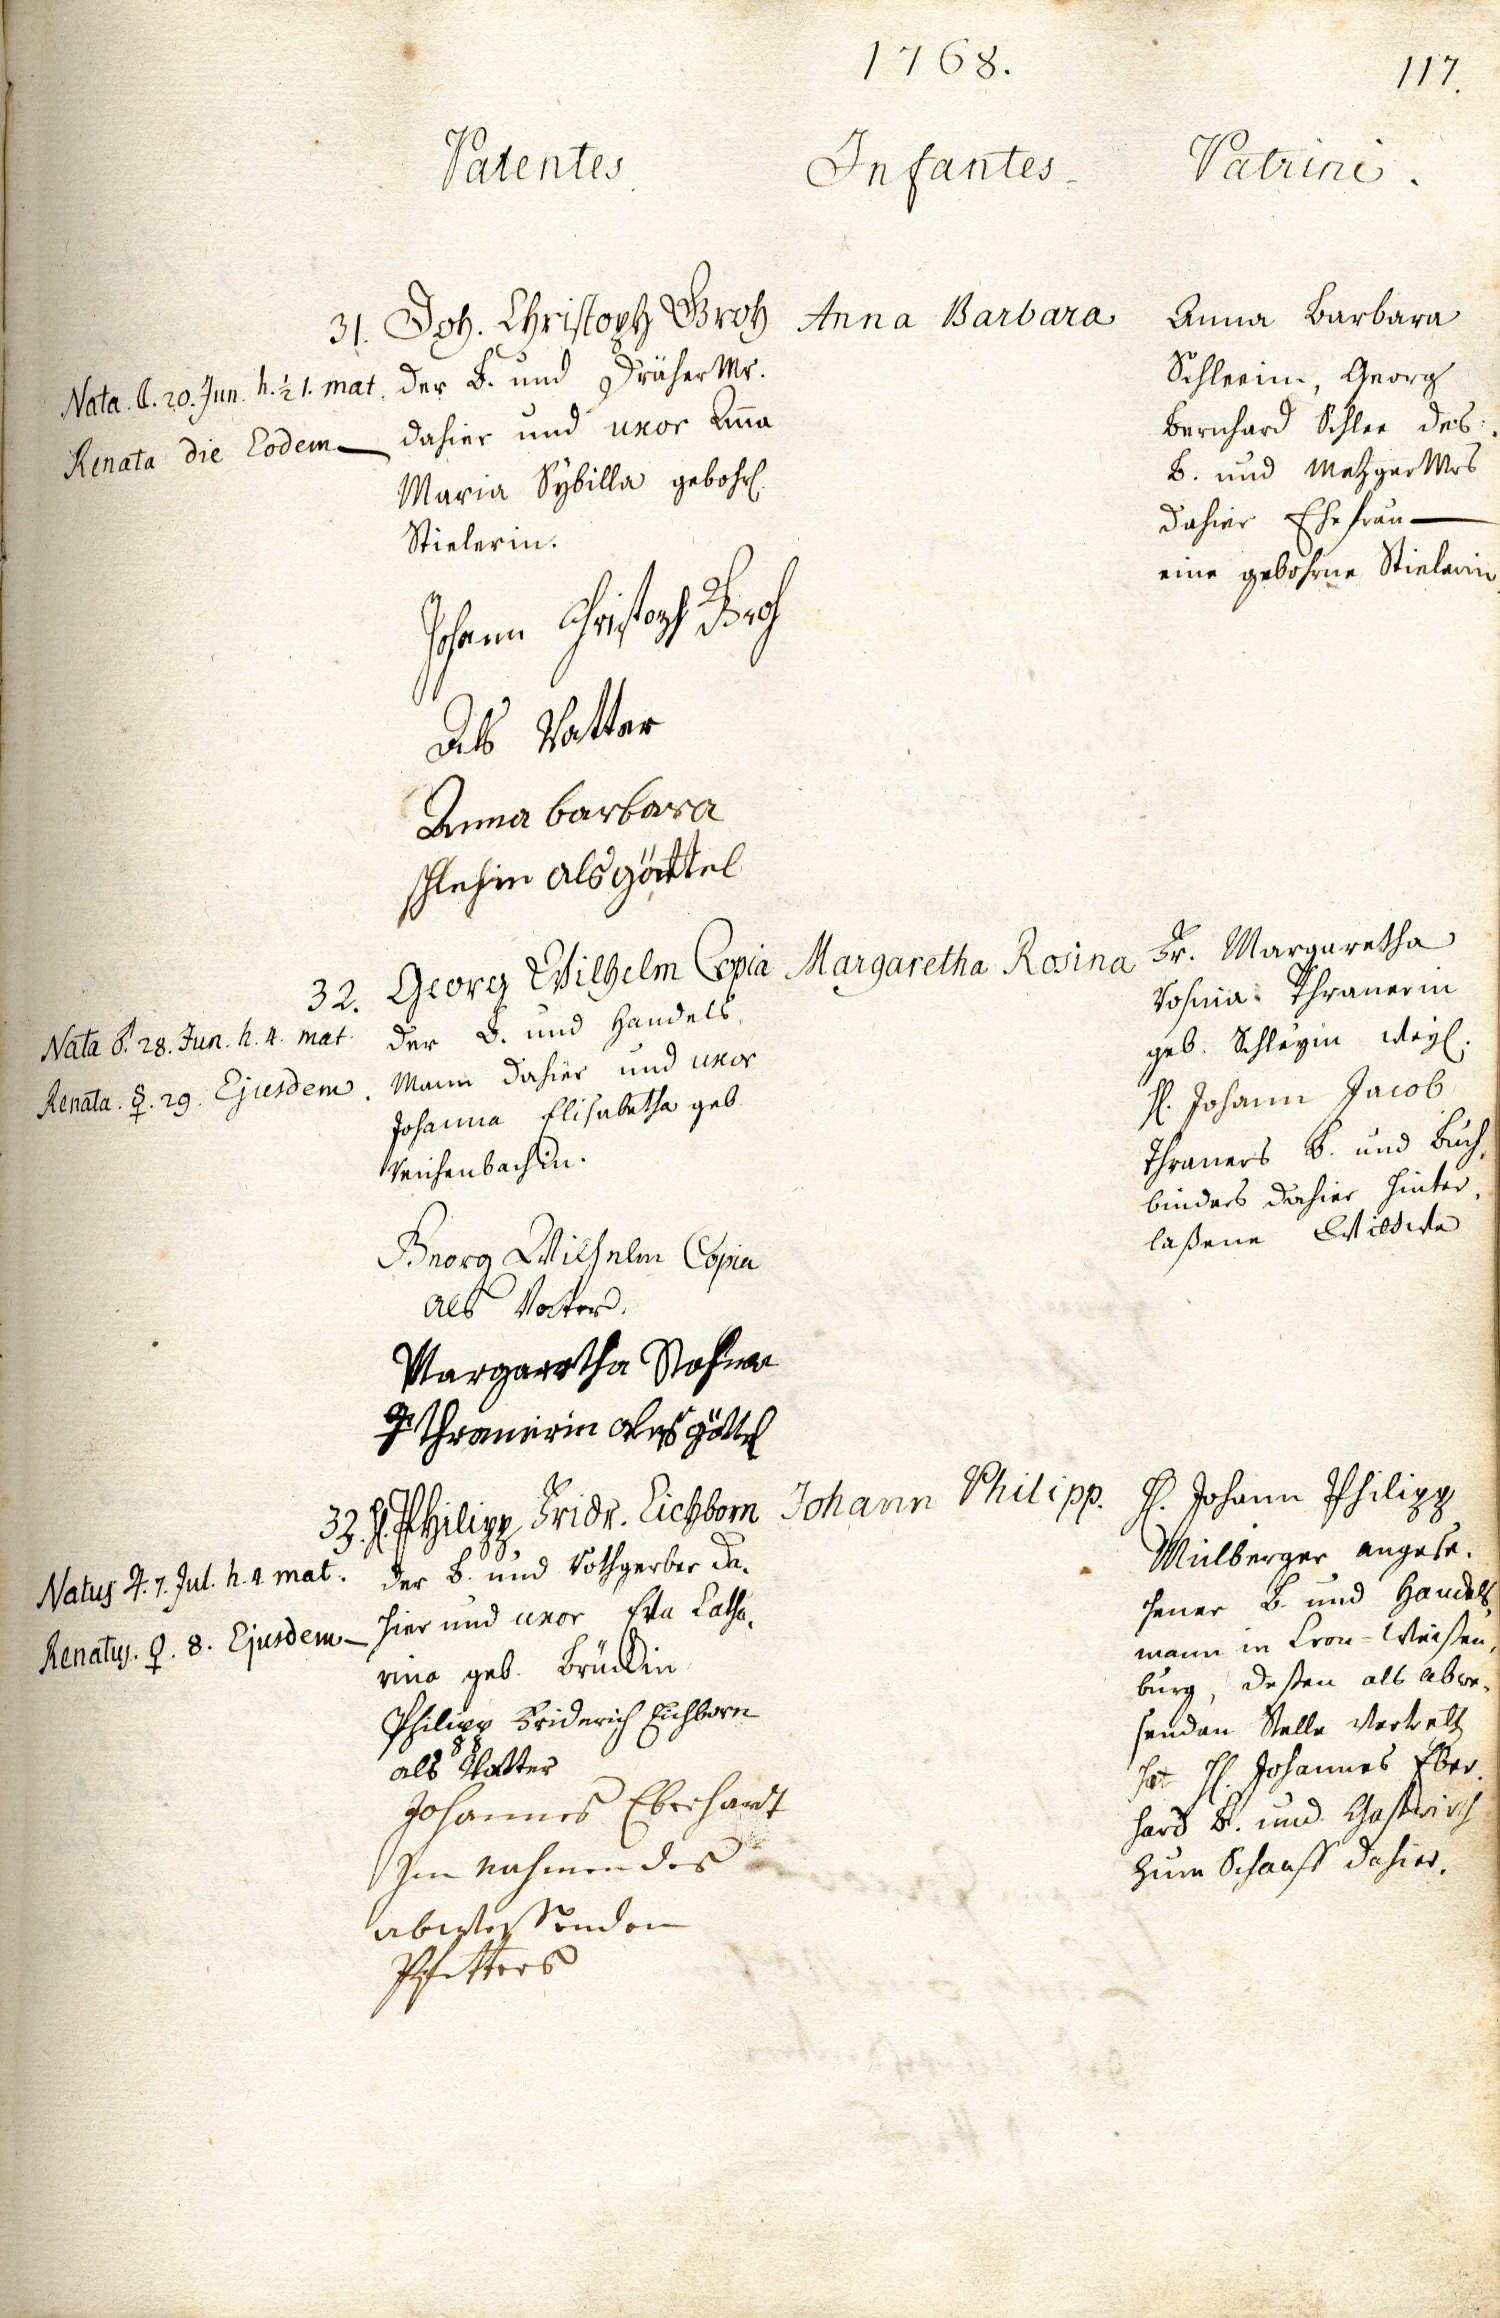 1768.
117.
Parentes
Infantes
Patrini.
31. Joh. Christoph Groh
der B. und Dräher Mr.
dahier und uxor Anna
Maria Sybilla gebohr.
Stielerin.
Nata. 20. Jun. h. ½ 1. mat.
Renata die Eodem
Anna Barbara
Anna Barbara
Schleein, Georg
Bernhard Schlee des
B. und Metzger Mrs
dahier Ehefrau
eine gebohrne Stielerin
Johann Christoph Groh
Als Vatter
Anna barbara
schlehin als göttel
32. Georg Wilhelm Copia
der B. und Handels
Mann dahier und uxor
Johanna Elisabetha geb.
Reichenbachin.
Nata ♂. 28. Jun. h. 4. mat.
Renata. ☿. 29. Ejusdem.
Margaretha Rosina
Fr. Margaretha
Rosina Thranerin
geb. Schleyin weyl.
H. Johann Jacob
Thraners B. und Buch,
binders dahier hinter,
laßene Wittwe
Georg Wilhelm Copia
als Vater.
Margaretha Rosina
thranerin als göttel
33. H. Philipp Fridr. Eichborn
der B. und Rothgerber da,
hier und uxor Eva Catha,
rina geb. Brückin
Natus ♃. 7. Jul. h. 4 mat.
Renatus. ♀. 8. Ejusdem
Johann Philipp.
H. Johann Philipp
Mülberger angese,
hener B. und Handels,
mann in Cron-Weißen,
burg, deßen als abwe,
senden Stelle vertrelt
hat H. Johannes Eber,
hard B. und Gastwirth
zum Schaaff dahier.
Philipp Friderich Eichborn
als Vatter
Johannes Eberhardt
Im nahmen des
abweßenden
Pfetters